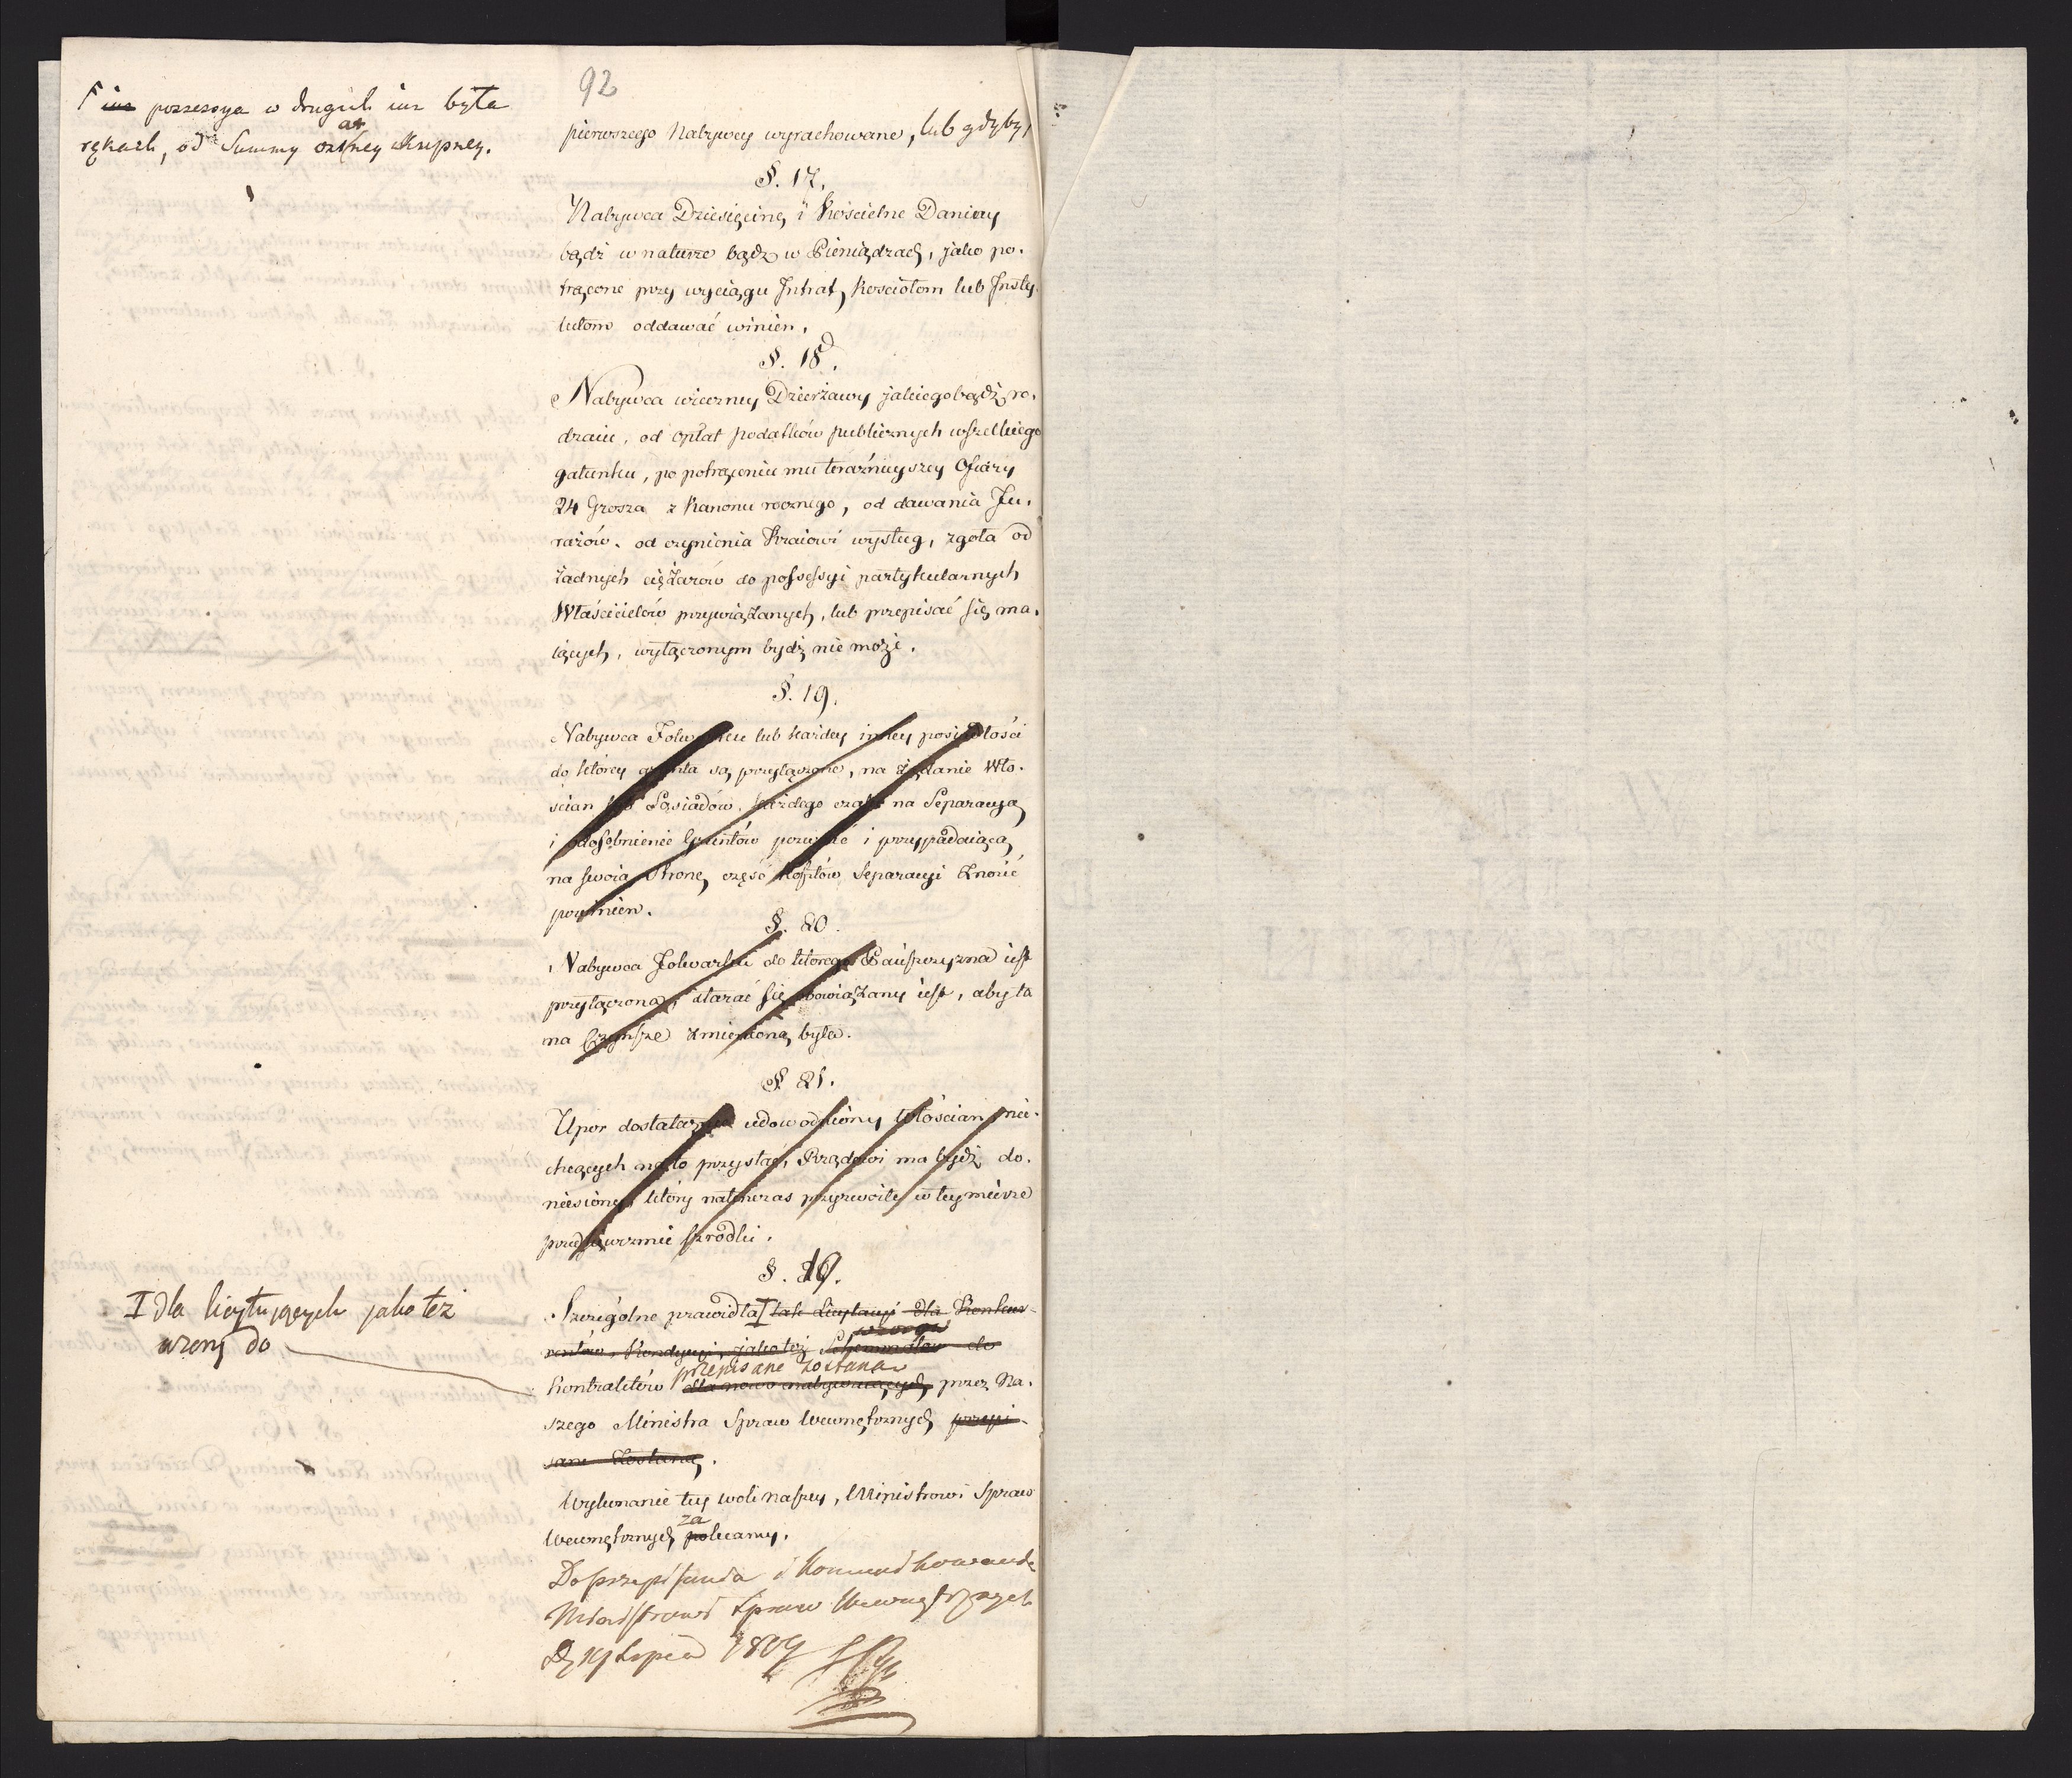 92
Γ iuz possessya w drugich iuz była
rękach, od Summy ostat̃ney Kupney.
pierwszego Nabywcy wyrachowane, lub gdyby Γ
§. 17.
Nabywca Dziesięcinę i Kościelne Daniny
bądź w naturze bądź w Pieniądzach, jako po-
trącone przy wyciągu Intrat, Kosciołom lub Insty-
tutom oddawać winien.
§. 18.
Nabywca wieczney Dzierżawy jakiegobądź ro-
dzaiu, od opłat podatków publicznych wszelkiego
gatunku, po potrąceniu mu teraźnieyszey Ofiary
24 Grosza z Kanonu rocznego, od dawania Fu-
rażów, od czynienia Kraiowi wysług, zgoła od
żadnych ciężarów do possessyi partykularnych
Właścicielów przywiązanych, lub przepisać się ma-
iących, wyłączonym bydź nie może.
§. 19.
Nabywca Folwarku lub każdey inney posiadłości
do którey grunta są przyłączone, na żądanie Wło-
ścian lub Sąsiadów, każdego czasu na Separacyą
i odosobnienie Gruntów pozwolić i przypadaiącą
na swoią stronę część Kosztów Separacyi znosić
powinien.
§. 20.
Nabywca Folwarku do którego Pańszczyzna iest
przyłączona, starać się obowiązany iest, aby ta
na Czynsze zmienioną była.
§. 21.
Upor dostatecznie udowodniony Włościan nie-
chcących na to przystać, Rządowi ma bydź do-
niesiony, który natenczas przyzwoite w tey mierze
przedsięweźmie srzodki.
§. 19.
I dla licytujących jako też
wzory do
Szczególne prawidła I tak Licytacyi dla Konkur-
rentów, Kondycyi, jako też Schematów do
wzorow
przepisane zostaną
Kontraktów dla nowo nabywaiących, przez Na-
szego Ministra Spraw Wewnętrznych przepi-
sane zostaną.
Wykonanie tey woli naszey, Ministrowi Spraw
za
Wewnętrznych polecamy.
Do przepisania i Kommunikowania
Ministrowi Spraw Wewnętrznych
D. 19 Lipca 1809